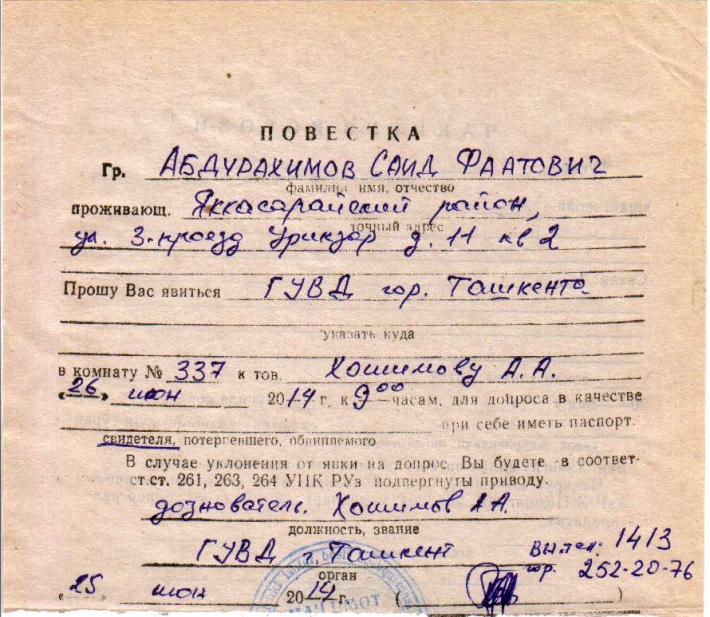 ПОВЕСТКА
Гр. АБДУРАХИМОВ САИД ФААТОВИЧ
фамилия имя, отчество
проживающ. Яккасарайский район,
точный адрес
ул. 3-проезд Урикзар д. 11 кв 2
Прошу Вас явиться ГУВД гор. Ташкента
указать куда
в комнату № 337 к тов. Хошимову А.А.
«26» июн 2014 г. к 9 00 часам, для допроса в качестве
при себе иметь паспорт.
свидетеля, потерпевшего, обвиняемого
В случае уклонения от явки на допрос Вы будете в соответ-
ст.ст. 261, 263, 264 УПК РУз подвергнуты приводу.
дознователь. Хошимов А.А.
должность, звание
ГУВД г. Ташкент
орган
1413
гор. 252-20-76
«25 июн 2014 г. (